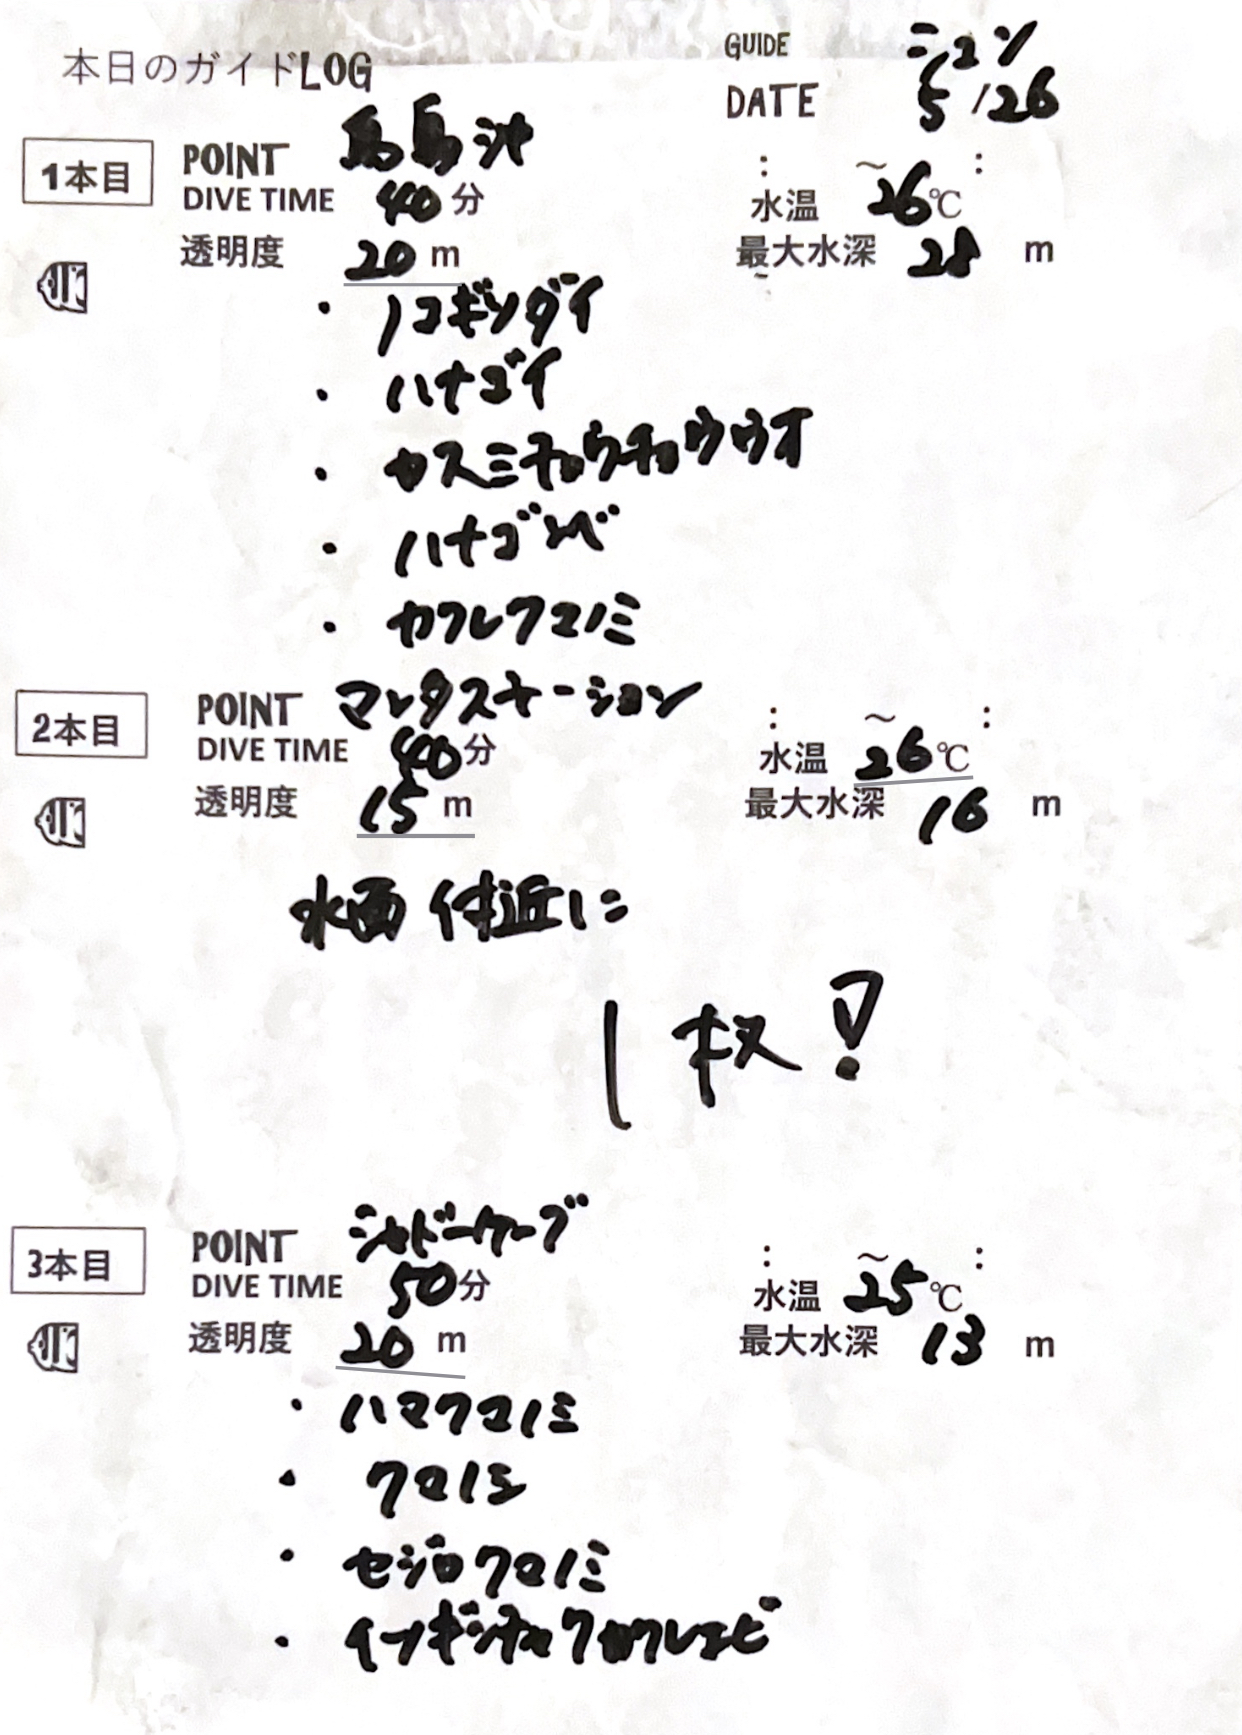 本日のガイドLOG
GUIDE シュン
DATE 5/26
1本目
POINT 烏烏池 : ～ :
DIVE TIME 40分 水温 26℃
透明度 20m 最大水深 28m
・ノコギリダイ
・ハナゴイ
・カスミチョウチョウウオ
・ハナゴンベ
・カクレクマノミ
2本目
POINT マンタステーション : ～ :
DIVE TIME 40分 水温 26℃
透明度 15m 最大水深 16m
水面付近に
1枚!
3本目
POINT シャドーケーブ : ～ :
DIVE TIME 50分 水温 25℃
透明度 20m 最大水深 13m
・ハマクマノミ
・クマノミ
・セジロクマノミ
・イソギンチャクカクレエビ